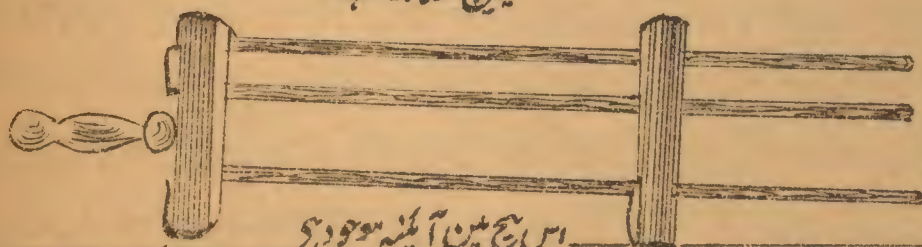 اس بیچ مین آئینہ موجود ہی